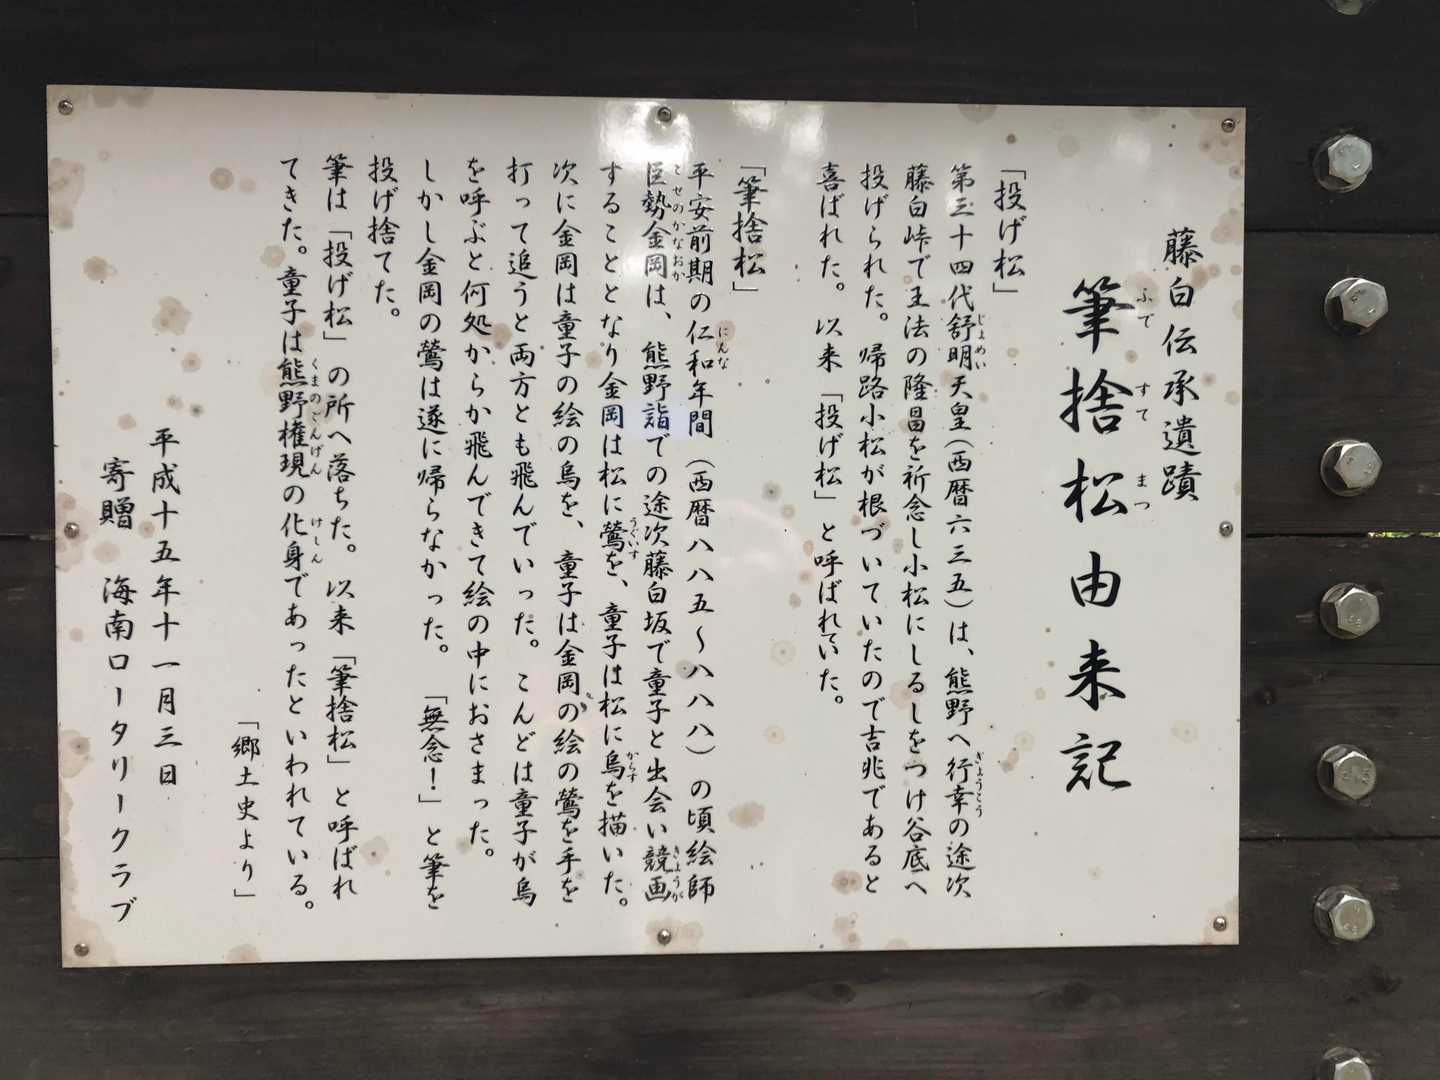 藤白伝承遺蹟
筆捨松由来記
ふで すて まつ
「投げ松」
第三十四代舒明天皇(西暦六三五)は、熊野へ行幸の途次
じょめい ぎょうこう
藤白峠で王法の隆昌を祈念し小松にしるしをつけ谷底へ
投げられた。帰路小松が根づいていたので吉兆であると
喜ばれた。以来「投げ松」と呼ばれていた。
「筆捨松」
平安前期の仁和年間(西暦八八五〜八八八)の頃絵師
にんな
巨勢金岡は、熊野詣での途次藤白坂で童子と出会い競画
こせのかなおか きょうが
することとなり金岡は松に鶯を、童子は松に烏を描いた。
うぐいす からす
次に金岡は童子の絵の烏を、童子は金岡の絵の鶯を手を
打って追うと両方とも飛んでいった。こんどは童子が烏
を呼ぶと何処からか飛んできて絵の中におさまった。
しかし金岡の鶯は遂に帰らなかった。「無念!」と筆を
投げ捨てた。
筆は「投げ松」の所へ落ちた。以来「筆捨松」と呼ばれ
てきた。童子は熊野権現の化身であったといわれている。
くまのごんげん けしん
「郷土史より」
平成十五年十一月三日
寄贈 海南ロータリークラブ